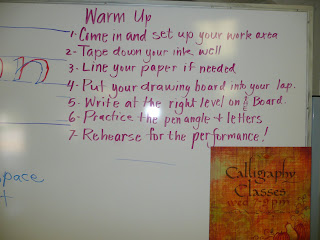 Warm Up
1- Come in and set up your work area
2- Tape down your ink well
3- Line your paper if needed
4- Put your drawing board into your lap.
5- Write at the right level on the Board.
6- Practice the pen angle + letters
7- Rehearse for the performance!
n
space
Calligraphy
Classes
wed 7-9pm